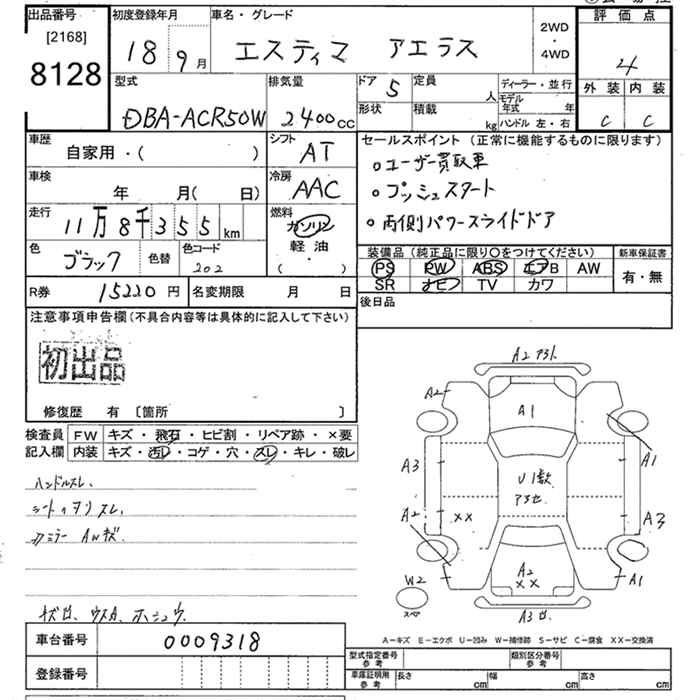 出品番号
[2168]
8128
初度登録年月
18 9月
車名・グレード
エスティマ アエラス
2WD
・
4WD
評価点
4
外装 内装
C C
型式
DBA-ACR50W
排気量
2400cc
ドア 5
定員 人
形状
積載 kg
ディーラー・並行
モデル年式 年
ハンドル 左・右
車歴
自家用・( )
シフト
AT
車検
年 月( 日)
冷房
AAC
走行
11万8千355km
燃料
ガソリン
軽油
( ・ )
色
ブラック
色替
色コード
202
セールスポイント (正常に機能するものに限ります)
○ユーザー買取車
○プッシュスタート
○両側パワースライドドア
装備品(純正品に限り○をつけてください)
PS PW ABS エアB AW
SR ナビ TV カワ
新車保証書
有・無
R券 15220円
名変期限 月 日
後日品
注意事項申告欄(不具合内容等は具体的に記入して下さい)
初出品
修復歴 有 〔箇所 〕
検査員記入欄
FW キズ・飛石・ヒビ割・リペア跡・×要
内装 キズ・汚レ・コゲ・穴・スレ・キレ・破レ
ハンドルスレ、
車台番号 0009318
登録番号
A2
A2
A1
A1
A3
U1数
A2
XX
A3
A2
XX
A1
W2
スペア
A3
A-キズ E-エクボ U-凹み W-補修跡 S-サビ C-腐食 XX-交換済
型式指定番号
参考
類別区分番号
参考
車庫証明用
参考
長さ cm
幅 cm
高さ cm